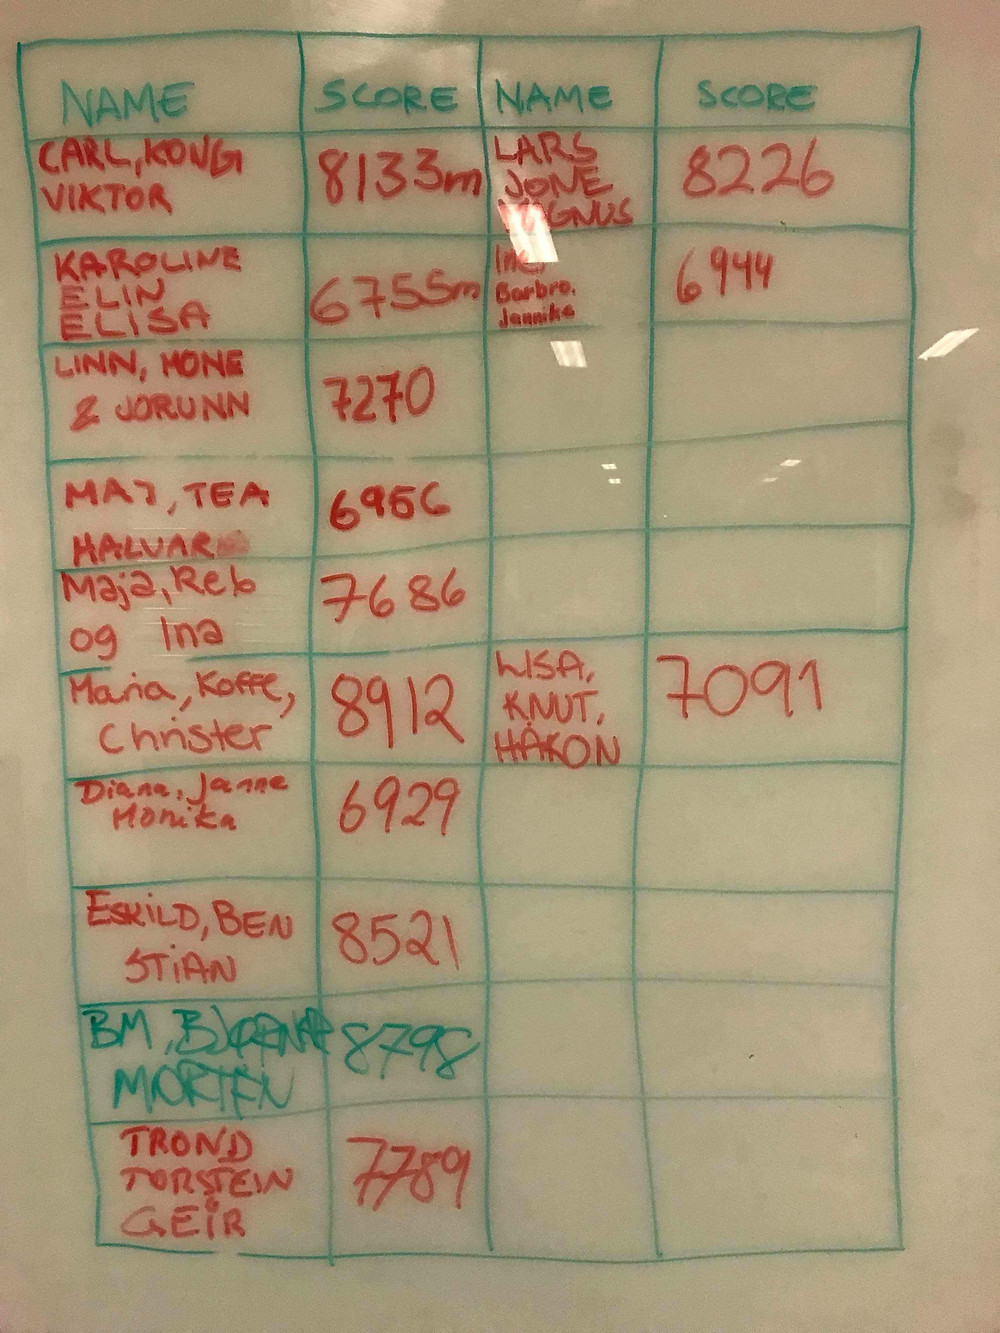 NAME SCORE NAME SCORE
CARL, KONG
VIKTOR
8133m
LARS
JONE
MAGNUS
8226
KAROLINE
ELIN
ELISA
6755m
Barbro,
Jannika
6944
LINN, MONE
& JORUNN
7270
MAJ, TEA
HALVAR
6956
Maja, Reb
og Ina
7686
Maria, Koffe,
Christer
8912
LISA,
KNUT,
HÅKON
7091
Diana, Janne
Monika
6929
ESKILD, BEN
STIAN
8521
BM, BJØRNAR
MORTEN
8798
TROND
TORSTEIN
GEIR
7789